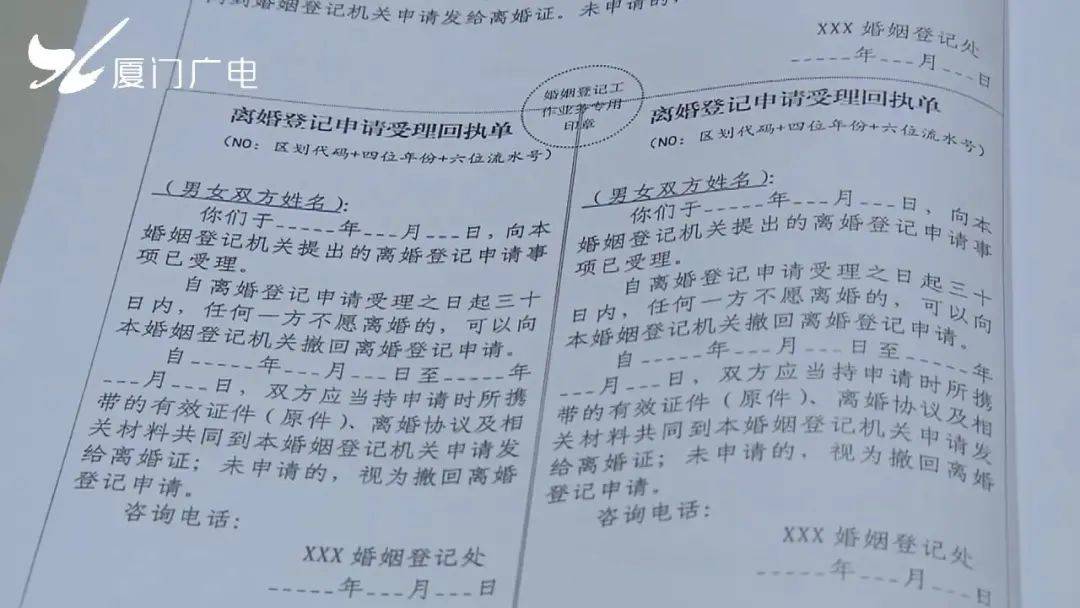 向到婚姻登记机关申请发给离婚证。未申请的，
XXX 婚姻登记处
-----年---月---日
厦门广电
婚姻登记工
作业务专用
印章
离婚登记申请受理回执单
（NO：区划代码+四位年份+六位流水号）
（男女双方姓名）：
你们于-----年---月---日，向本
婚姻登记机关提出的离婚登记申请事
项已受理。
自离婚登记申请受理之日起三十
日内，任何一方不愿离婚的，可以向
本婚姻登记机关撤回离婚登记申请。
自-----年---月---日至-----年
---月---日，双方应当持申请时所携
带的有效证件（原件）、离婚协议及相
关材料共同到本婚姻登记机关申请发
给离婚证；未申请的，视为撤回离婚
登记申请。
咨询电话：
XXX 婚姻登记处
-----年---月---日
离婚登记申请受理回执单
（NO：区划代码+四位年份+六位流水号）
（男女双方姓名）：
你们于-----年---月---日，向本
婚姻登记机关提出的离婚登记申请事
项已受理。
自离婚登记申请受理之日起三十
日内，任何一方不愿离婚的，可以向
本婚姻登记机关撤回离婚登记申请。
自-----年---月---日至-----年
---月---日，双方应当持申请时所携
带的有效证件（原件）、离婚协议及相
关材料共同到本婚姻登记机关申请发
给离婚证；未申请的，视为撤回离婚
登记申请。
咨询电话：
XXX 婚姻登记处
-----年---月---日